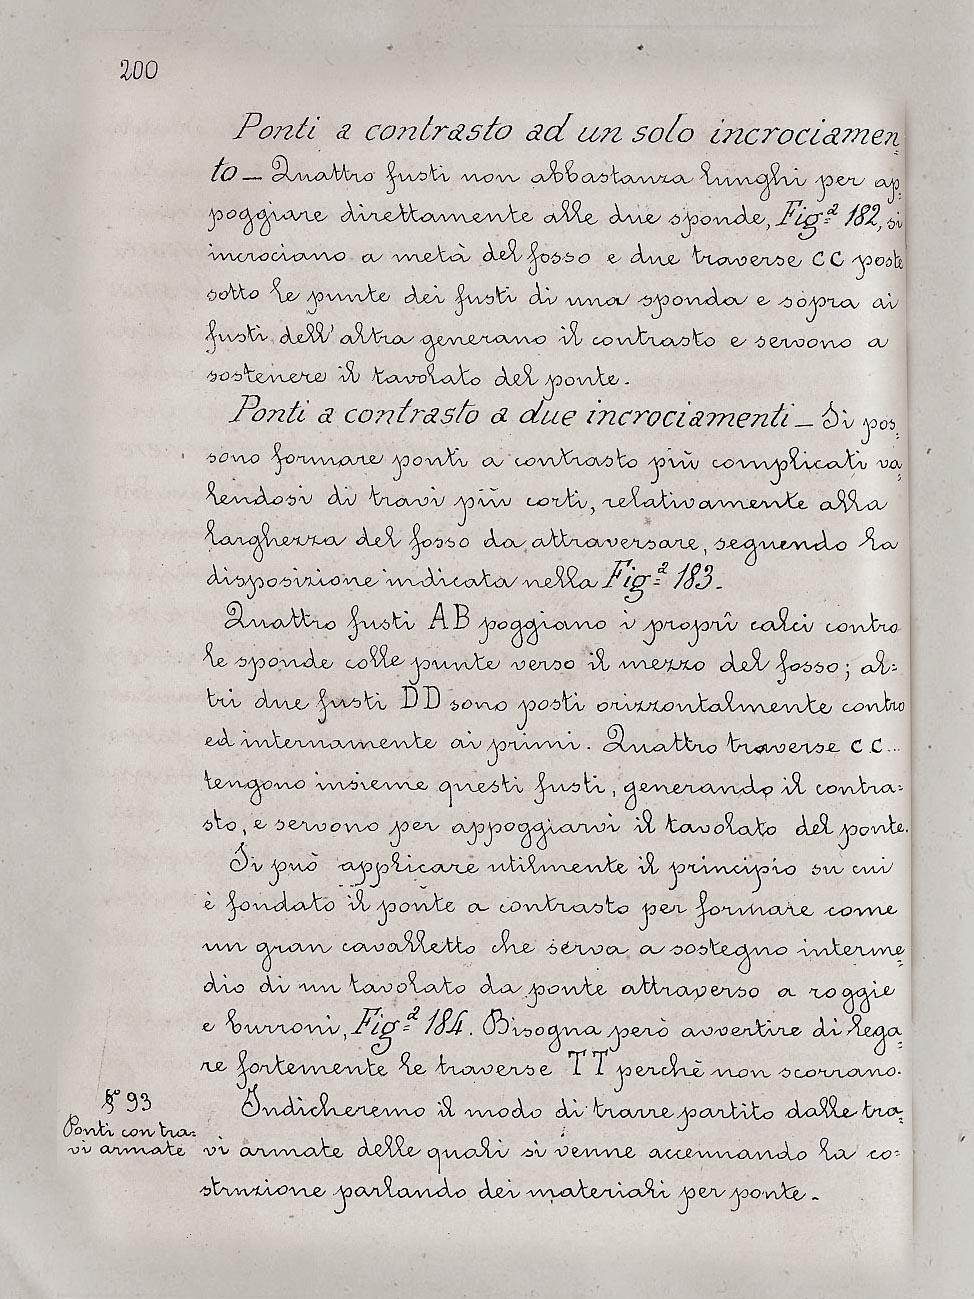 200
Ponti a contrasto ad un solo incrociamen=
to — Quattro fusti non abbastanza lunghi per ap=
poggiare direttamente alle due sponde, Figª 182, si
incrociano a metà del fosso e due traverse CC poste
sotto le punte dei fusti di una sponda e sopra ai
fusti dell'altra generano il contrasto e servono a
sostenere il tavolato del ponte.
Ponti a contrasto a due incrociamenti — Si pos=
sono formare ponti a contrasto più complicati va=
lendosi di travi più corti, relativamente alla
larghezza del fosso da attraversare, seguendo la
disposizione indicata nella Figª 183.
Quattro fusti AB poggiano i proprî calci contro
le sponde colle punte verso il mezzo del fosso; al=
tri due fusti DD sono posti orizzontalmente contro
ed internamente ai primi. Quattro traverse CC...
tengono insieme questi fusti, generando il contra=
sto, e servono per appoggiarvi il tavolato del ponte.
Si può applicare utilmente il principio su cui
è fondato il ponte a contrasto per formare come
un gran cavalletto che serva a sostegno interme=
dio di un tavolato da ponte attraverso a roggie
e burroni, Figª 184. Bisogna però avvertire di lega=
re fortemente le traverse TT perchè non scorrano.
§º 93
Ponti con tra=
vi armate
Indicheremo il modo di trarre partito dalle tra=
vi armate delle quali si venne accennando la co=
struzione parlando dei materiali per ponte.